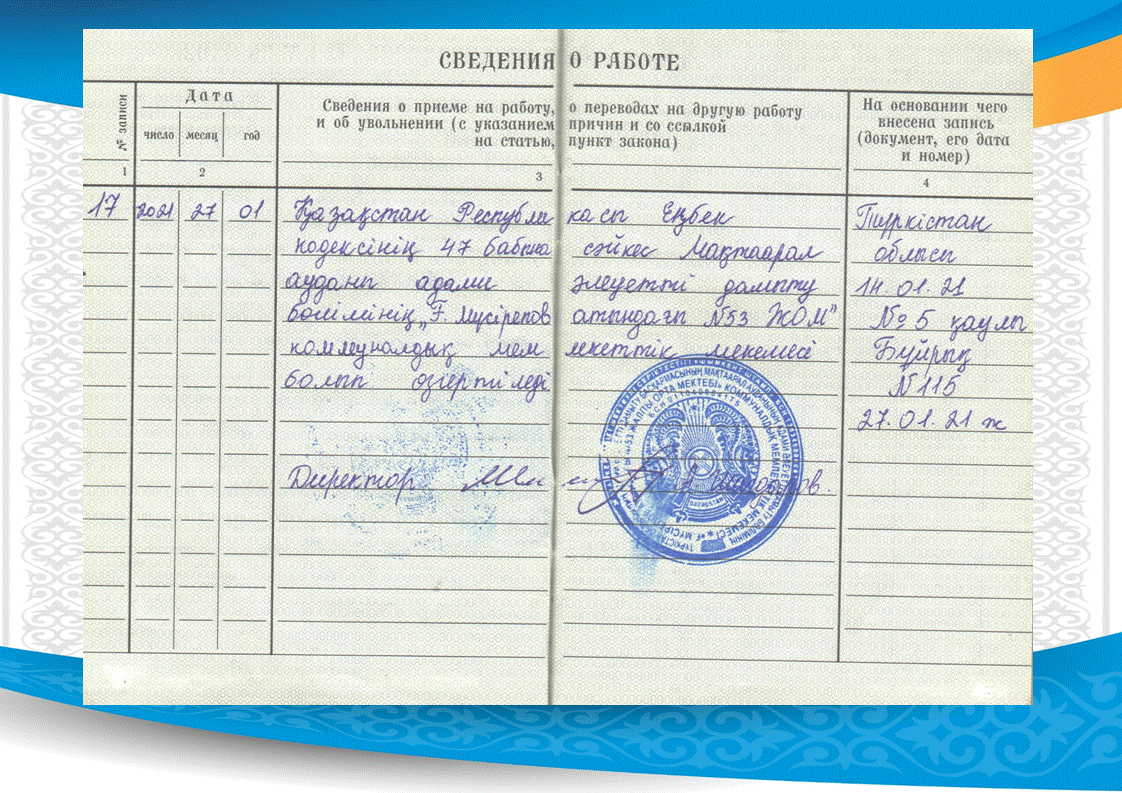 СВЕДЕНИЯ О РАБОТЕ
№ записи
Дата
число месяц год
Сведения о приеме на работу, о переводах на другую работу
и об увольнении (с указанием причин и со ссылкой
на статью, пункт закона)
На основании чего
внесена запись
(документ, его дата
и номер)
1 2 3 4
17 2021 27 01 Қазақстан Республикасы Еңбек Түркістан
кодексінің 47 бабына сәйкес Мақтаарал облысы
ауданы адами әлеуетті дамыту 14.01.21
бөлімінің „Ғ. Мүсірепов атындағы №53 ЖОМ" №5 қаулы
коммуналдық мемлекеттік мекемесі Бұйрық
болып өзгертіледі №115
27.01.21 ж
Директор